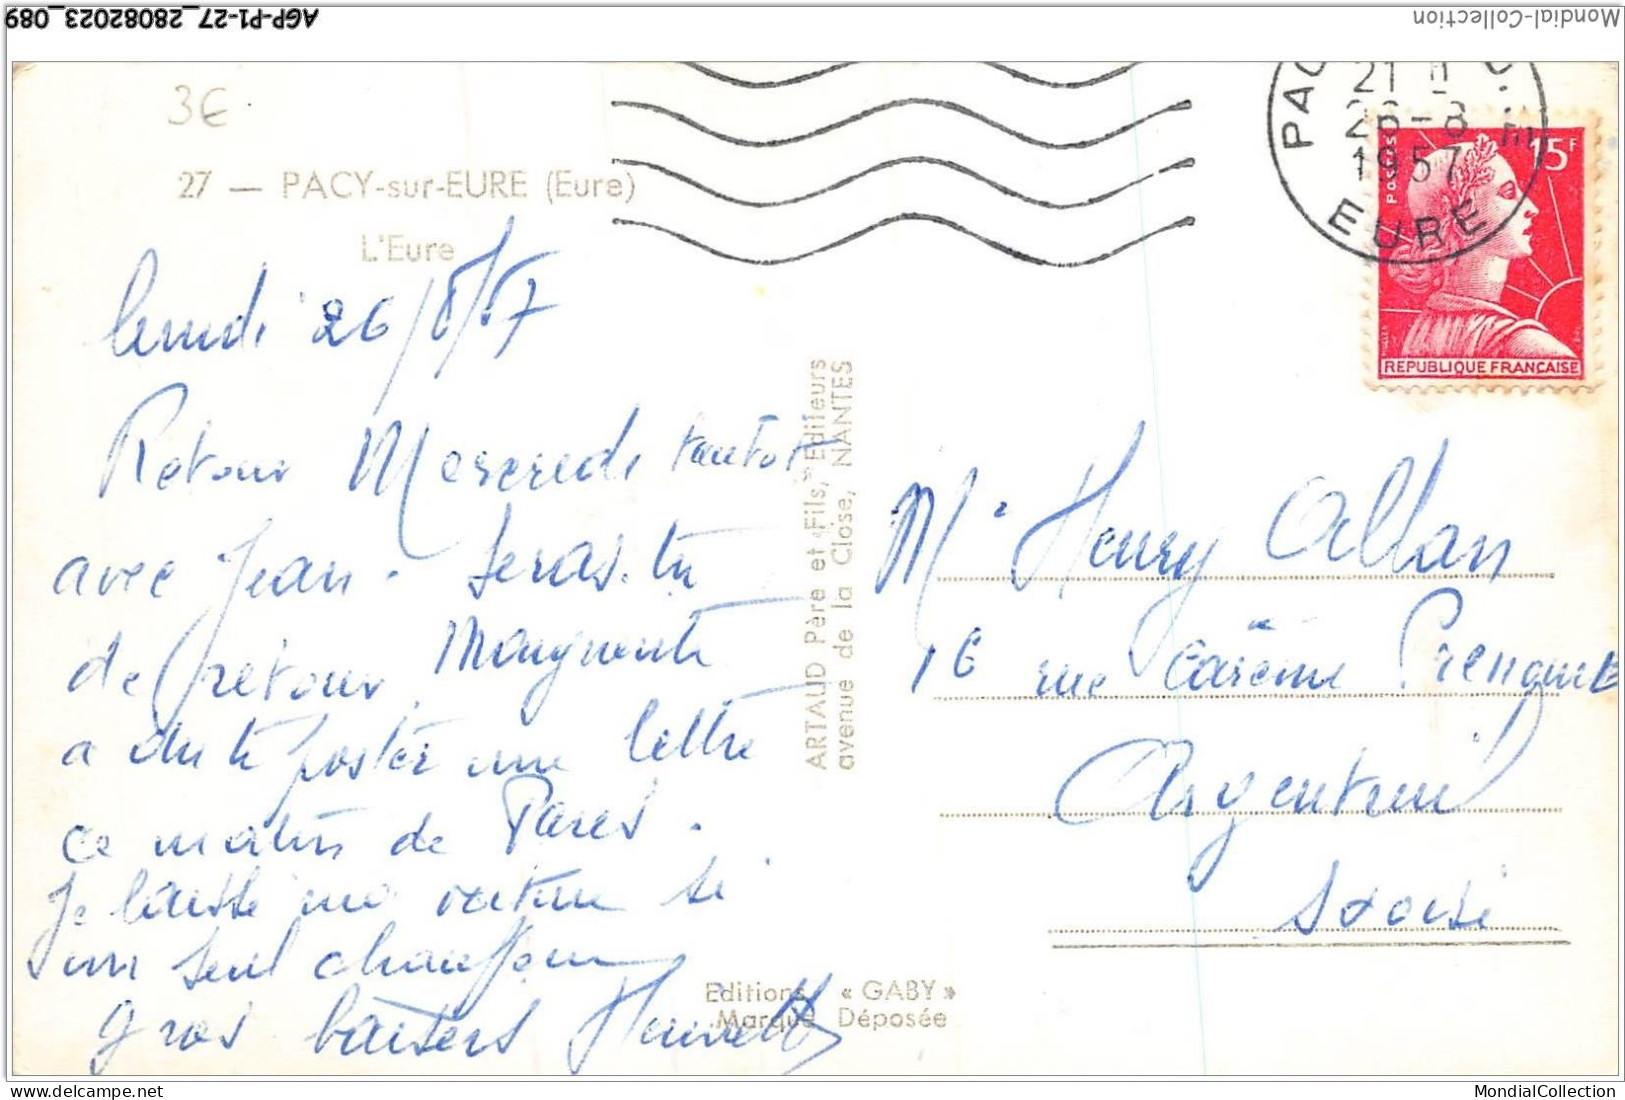 AGP-P1-27_28082023_089
Mondial-Collection
3€
27 — PACY-sur-EURE (Eure)
L'Eure
21 H
26-8
1957
EURE
Postes
15F
REPUBLIQUE FRANCAISE
lundi 26/8/57
Retour Mercredi tantôt
avec Jean. Seras-tu
de retour, Marguerite
a dû te poster une lettre
ce matin de Paris.
Je laisse ma voiture ici
un seul chauffeur
Gros baisers
ARTAUD Père et Fils, Editeurs
avenue de la Close, NANTES
Editions « GABY »
Marque Déposée
Mr Henry Allan
16 rue Carême Prenant
Argenteuil
S. et Oise
MondialCollection